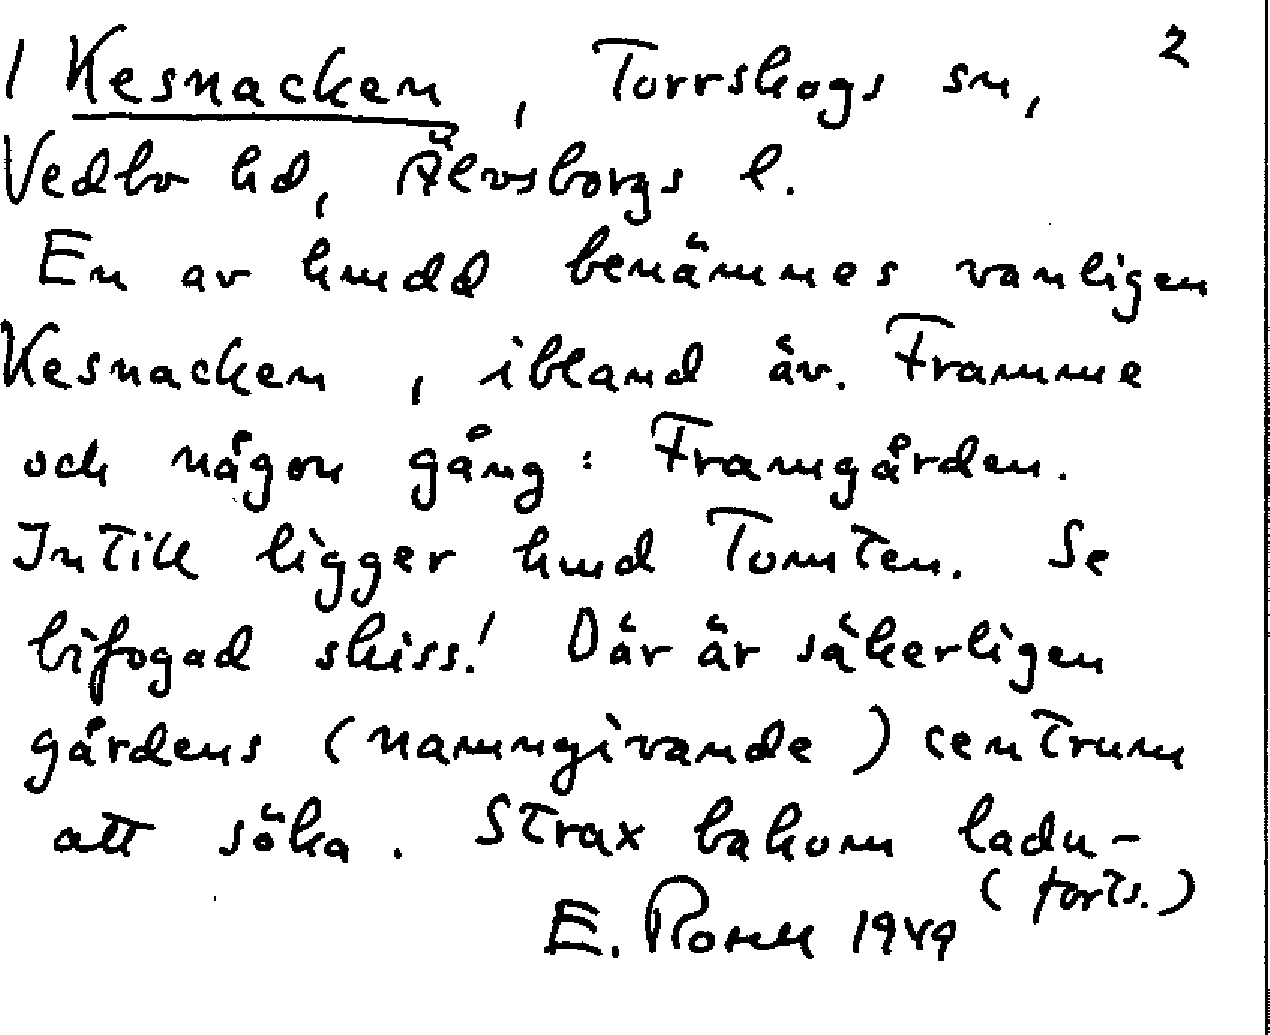 1 Kesnacken, Torrskogs sn, 2
Vedbo hd, Älvsborgs l.
En av hmdd benämnes vanligen
Kesnacken, ibland äv. Framme
och någon gång: Framgården.
Intill ligger hmd Tomten. Se
bifogad skiss! Där är säkerligen
gårdens (namngivande) centrum
att söka. Strax bakom ladu-
(forts.)
E. Rosell 1949